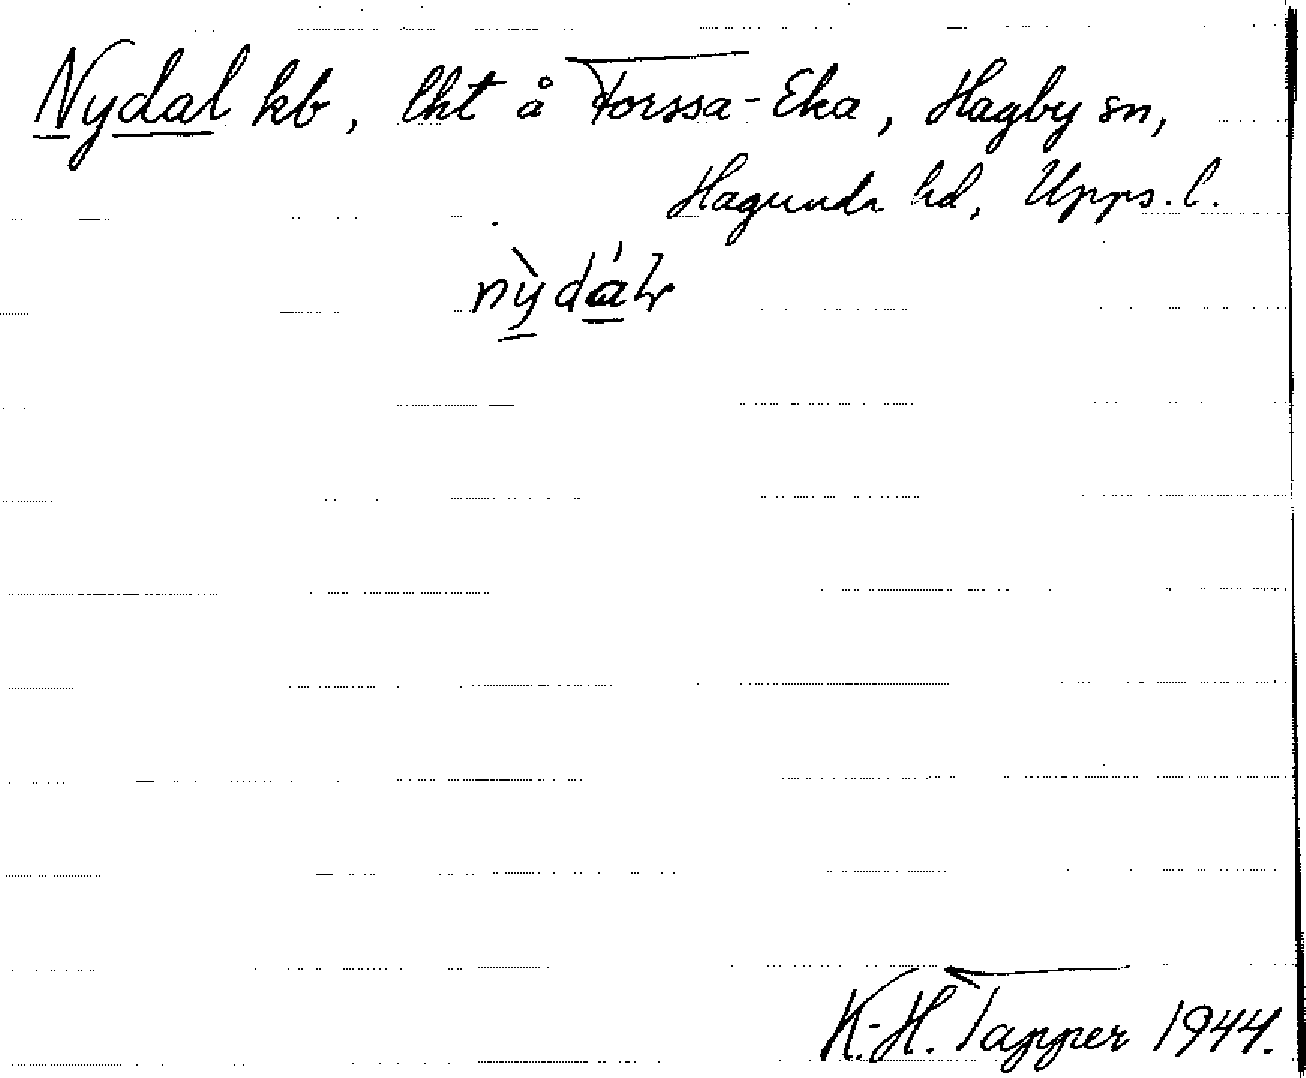 Nydal kb, lht å Forssa-Eka, Hagby sn,
Hagunda hd, Upps. l.
nỳdál
K.-H. Tapper 1944.